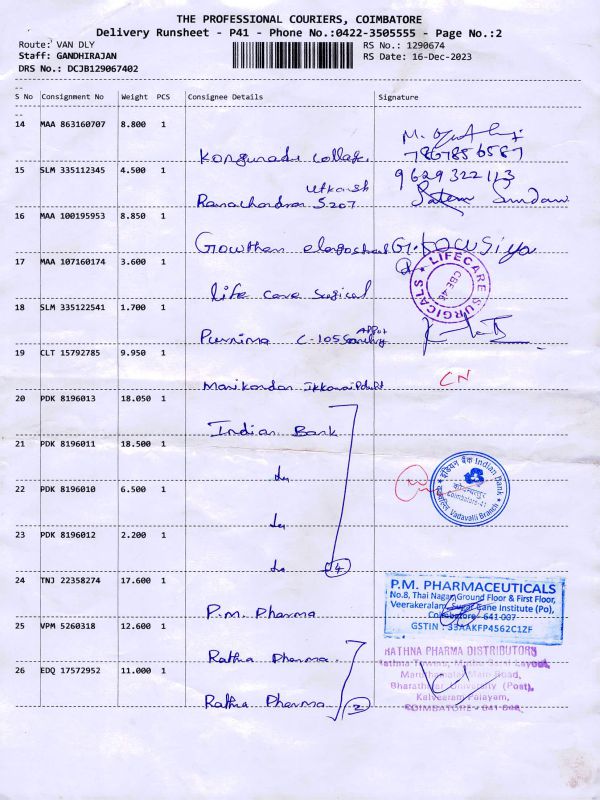 THE PROFESSIONAL COURIERS, COIMBATORE
Delivery Runsheet - P41 - Phone No.:0422-3505555 - Page No.:2
Route: VAN DLY
RS No.: 1290674
Staff: GANDHIRAJAN
RS Date: 16-Dec-2023
DRS No.: DCJB129067402
S No Consignment No Weight PCS Consignee Details Signature
14 MAA 863160707 8.800 1
7867856587
15 SLM 335112345 4.500 1
9629322113
Utkarsh
S207
16 MAA 100195953 8.850 1
Gowtham
17 MAA 107160174 3.600 1
LIFECARE SURGICALS
CBE-46
life care Surgical
18 SLM 335122541 1.700 1
Purnima C-105
19 CLT 15792785 9.950 1
Manikandan
CN
20 PDK 8196013 18.050 1
Indian Bank
21 PDK 8196011 18.500 1
इंडियन बैंक Indian Bank
कोयम्बत्तूर
Coimbatore-41
Vadavalli Branch
22 PDK 8196010 6.500 1
23 PDK 8196012 2.200 1
4
24 TNJ 22358274 17.600 1
P.M. PHARMACEUTICALS
No.8, Thai Nagar, Ground Floor & First Floor,
Veerakeralam, Sugar Cane Institute (Po),
Coimbatore - 641 007
GSTIN : 33AAKFP4562C1ZF
P.m. Pharma
25 VPM 5260318 12.600 1
RATHNA PHARMA DISTRIBUTORS
Rathna Pharma
26 EDQ 17572952 11.000 1
Main Road,
Bharathiar University (Post),
Kalveeram Palayam,
COIMBATORE - 641 046
Rathna Pharma
2